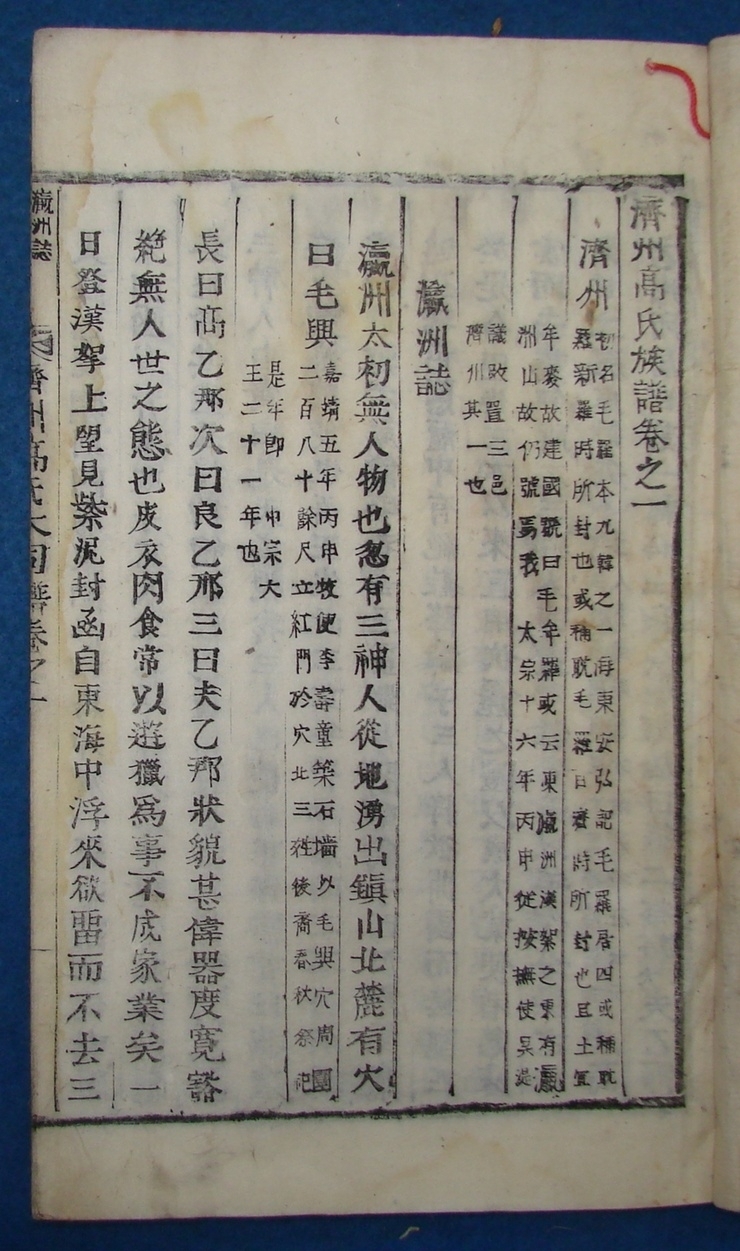 濟州高氏族譜卷之一
濟州
初名毛羅本九韓之一海東安弘記毛羅居四或稱耽
羅新羅時所封也或稱耽毛羅日齋時所封也且土宜
牟麥故建國號曰毛牟羅或云東瀛洲漢拏之東有瀛
洲山故仍號焉我 太宗十六年丙申從按撫使吳湜
議改置三邑
濟州其一也
瀛洲誌
瀛洲太初無人物也忽有三神人從地湧出鎭山北麓有穴
曰毛興
嘉靖五年丙申牧使李壽童築石墻以毛興穴周圍
二百八十餘尺立紅門於穴北三姓後裔春秋祭祀
是年卽 中宗大
王二十一年也
長曰高乙那次曰良乙那三曰夫乙那狀貌甚偉器度寬豁
絶無人世之態也皮衣肉食常以遊獵爲事不成家業矣一
日登漢拏上望見紫泥封函自東海中浮來欲留而不去三
瀛洲誌
濟州高氏大同譜卷之一